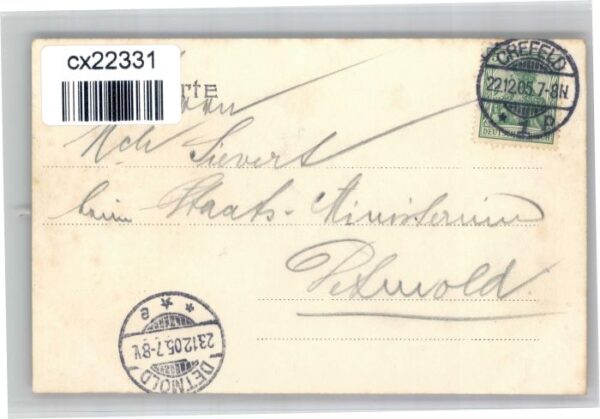 cx22331
rte
Sievert
beim Staats-Ministerium
Detmold
CREFELD
22.12.05.7-8N
* 1 p
DEUTSCHES REICH
DETMOLD
23.12.05.7-8V.
* * e